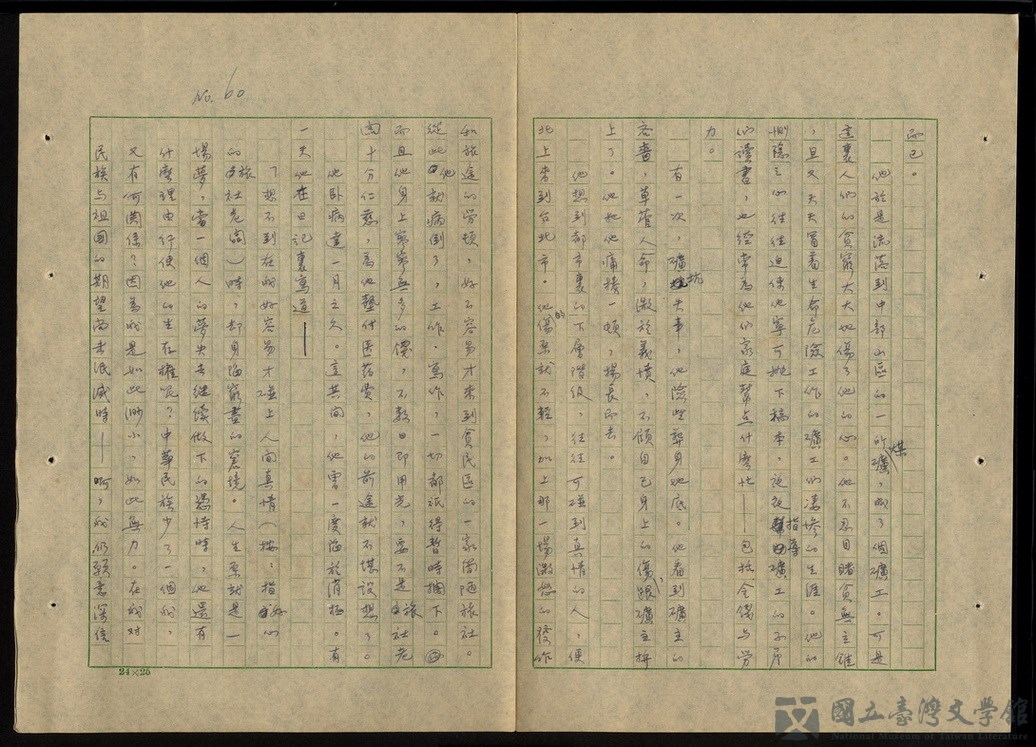 而已。
他於是流落到中部山區的一所煤礦,成了個礦工。可是
這裏人們的貧窮大大地傷了他的心。他不忍目睹貧無立錐
,且又天天冒着生命危險工作的礦工們淒慘的生涯。他的
惻隱之心往往迫使他寧可拋下稿本,夜夜指導礦工的子弟
們讀書,也經常為他們家庭幫點什麼忙——包括金錢與勞
力。
有一次,礦坑失事,他險些葬身地底。他看到礦主的
吝嗇,草菅人命,激於義憤,不顧自己身上的傷,跟礦主拚
上了。他把他痛揍一頓,場長即去。
他想到都市裏的下層階級,往往可碰到真情的人,便
北上來到台北市。他傷的原就不輕,加上那一場激怒的發作
和旅途的勞頓,好不容易才來到貧民區的一家簡陋旅社。
從此他就病倒了,工作、寫作,一切都祇得暫時擱下。
而且他身上寥寥無多的錢,不數日即用光,要不是旅社老
闆十分仁慈,為他墊付医药費,他的前途就不堪設想了。
他卧病達一月之久。這其间,他曾一度陷於消極。有
一天他在日記裏寫道——
「想不到在我好容易才碰上人间真情(按:指好心
的旅社老闆)時,却身陷窮盡的窘境。人生原就是一
場夢,當一個人的夢失去继续做下的憑恃時,他還有
什麼理由行使他的生存權呢?中華民族少了一個我,
又有何関係?因為我是如此渺小,如此無力。在我对
民族与祖国的期望尚未泯滅時——啊,我仍願意深信
No. 60
24×25
國立臺灣文學館
National Museum of Taiwan Literature